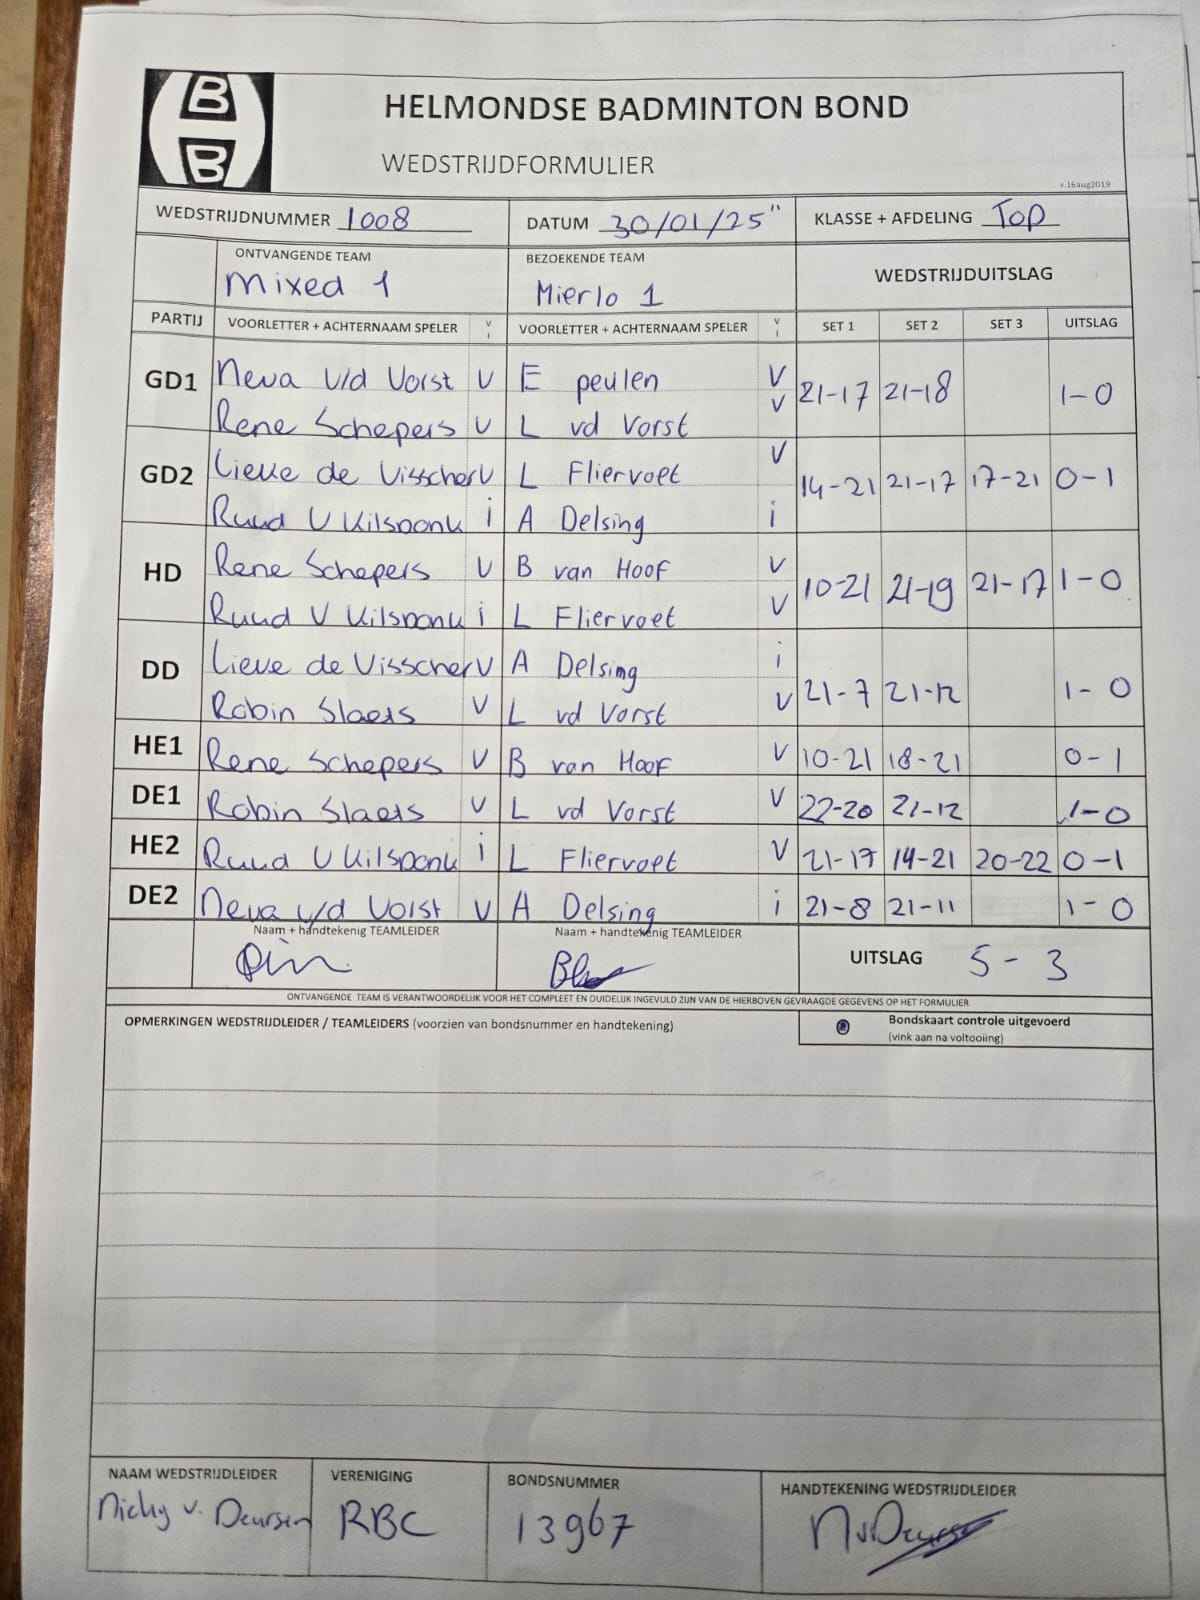 HELMONDSE BADMINTON BOND
WEDSTRIJDFORMULIER
v.16aug2019
WEDSTRIJDNUMMER 1008 DATUM 30/01/25" KLASSE + AFDELING Top
ONTVANGENDE TEAM BEZOEKENDE TEAM WEDSTRIJDUITSLAG
Mixed 1 Mierlo 1
PARTIJ VOORLETTER + ACHTERNAAM SPELER V/I VOORLETTER + ACHTERNAAM SPELER V/I SET 1 SET 2 SET 3 UITSLAG
GD1 Neva v/d Vorst V E peulen V 21-17 21-18 1-0
Rene Schepers V L vd Vorst V
GD2 Lieve de Visscher V L Fliervoet V 14-21 21-17 17-21 0-1
Ruud V Kilsdonk i A Delsing i
HD Rene Schepers V B van Hoof V 10-21 21-19 21-17 1-0
Ruud V Kilsdonk i L Fliervoet V
DD Lieve de Visscher V A Delsing i 21-7 21-12 1-0
Robin Slaets V L vd Vorst V
HE1 Rene Schepers V B van Hoof V 10-21 18-21 0-1
DE1 Robin Slaets V L vd Vorst V 22-20 21-12 1-0
HE2 Ruud V Kilsdonk i L Fliervoet V 21-17 14-21 20-22 0-1
DE2 Neva v/d Vorst V A Delsing i 21-8 21-11 1-0
Naam + handtekenig TEAMLEIDER Naam + handtekenig TEAMLEIDER UITSLAG 5-3
ONTVANGENDE TEAM IS VERANTWOORDELIJK VOOR HET COMPLEET EN DUIDELIJK INGEVULD ZIJN VAN DE HIERBOVEN GEVRAAGDE GEGEVENS OP HET FORMULIER
OPMERKINGEN WEDSTRIJDLEIDER / TEAMLEIDERS (voorzien van bondsnummer en handtekening) Bondskaart controle uitgevoerd
(vink aan na voltooiing)
NAAM WEDSTRIJDLEIDER VERENIGING BONDSNUMMER HANDTEKENING WEDSTRIJDLEIDER
Nicky v. Deursen RBC 13967 NvDeursen